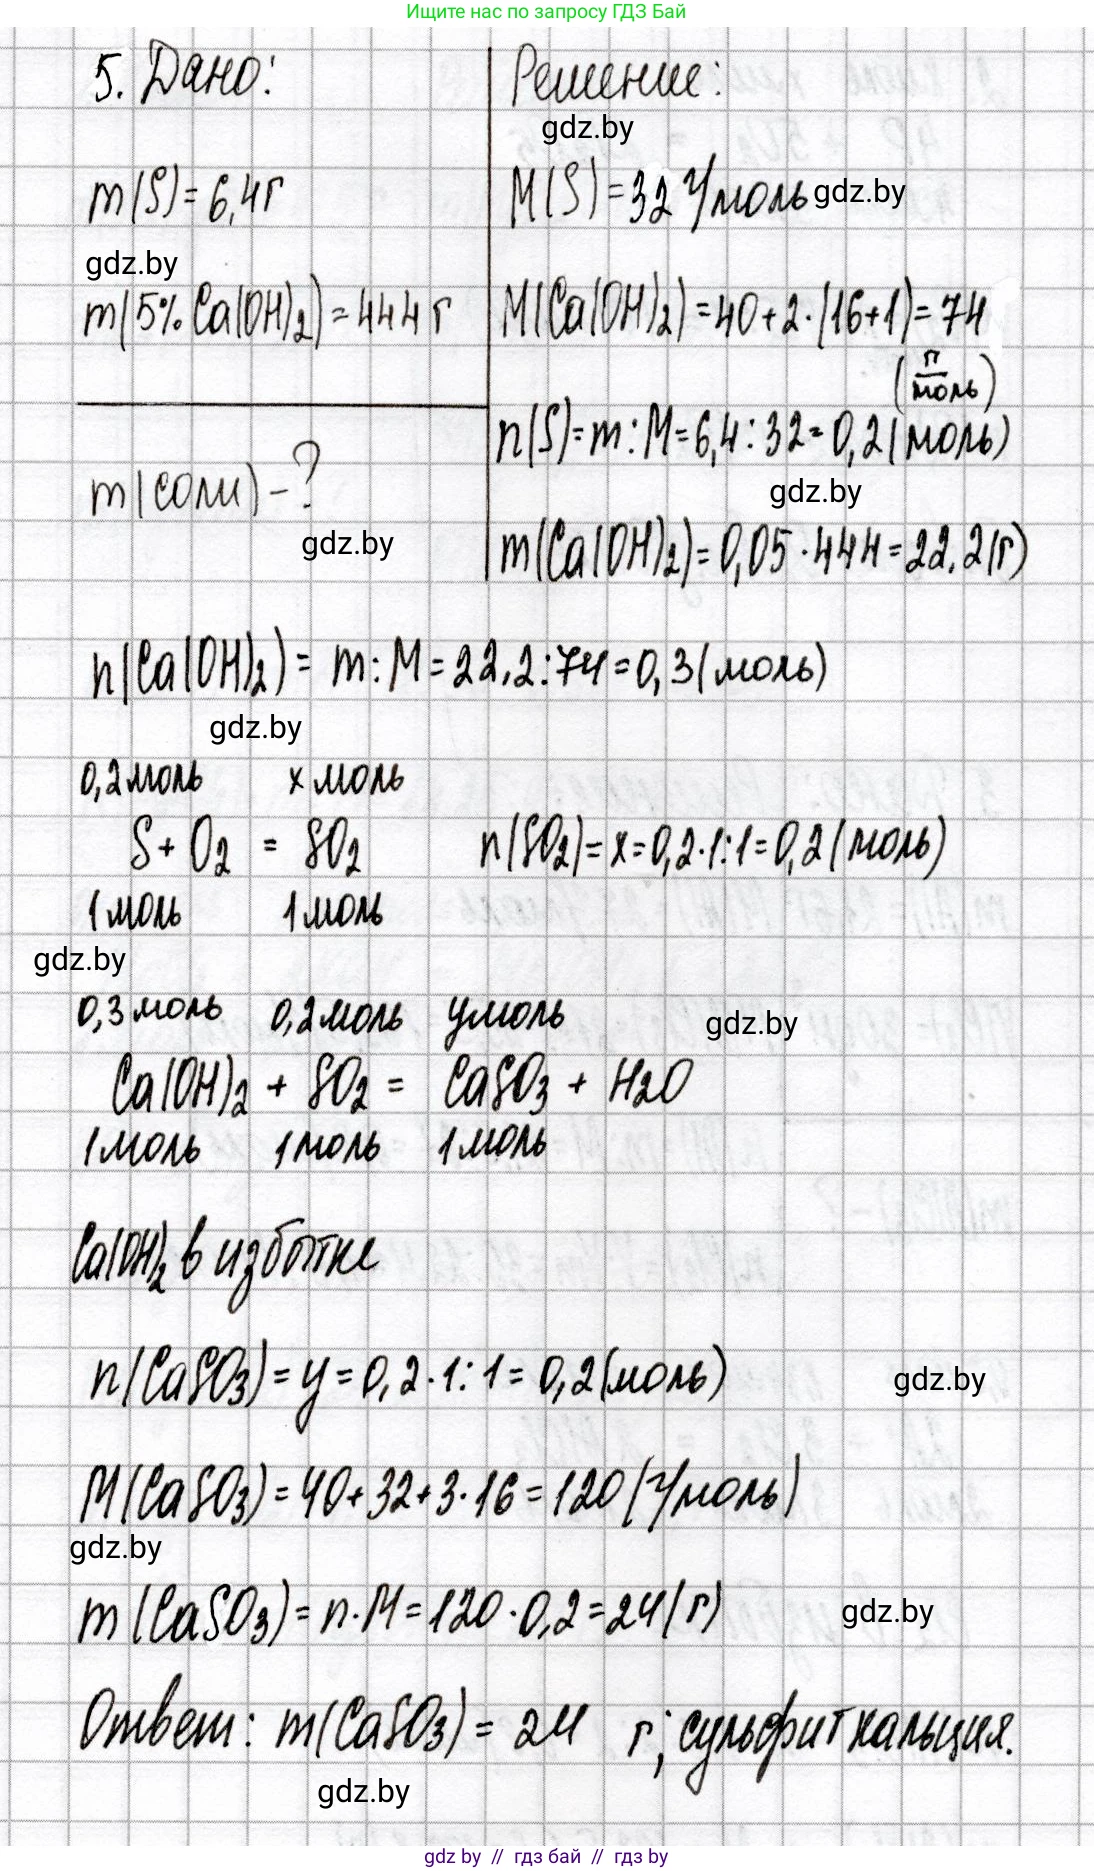 Ищите нас по запросу ГДЗ Бай
5. Дано:
Решение:
gdz.by
m(S)=6,4г
M(S)=32 г/моль gdz.by
gdz.by
m(5% Ca(OH)₂)=444 г
M(Ca(OH)₂)=40+2·(16+1)=74
(г/моль)
n(S)=m:M=6,4:32=0,2(моль)
m(соли)-?
gdz.by
gdz.by
m(Ca(OH)₂)=0,05·444=22,2(г)
n(Ca(OH)₂)= m:M=22,2:74=0,3(моль)
gdz.by
0,2моль x моль
S+O₂ = SO₂ n(SO₂)=x=0,2·1:1=0,2(моль)
1моль 1моль
gdz.by
0,3моль 0,2моль yмоль
gdz.by
Ca(OH)₂ + SO₂ = CaSO₃ + H₂O
1моль 1моль 1моль
Ca(OH)₂ в избытке
n(CaSO₃)=y=0,2·1:1=0,2(моль)
gdz.by
M(CaSO₃)=40+32+3·16=120(г/моль)
gdz.by
m(CaSO₃)=n·M=120·0,2=24(г)
gdz.by
Ответ: m(CaSO₃)=24 г; сульфит кальция.
gdz.by
gdz by // гдз бай // гдз by